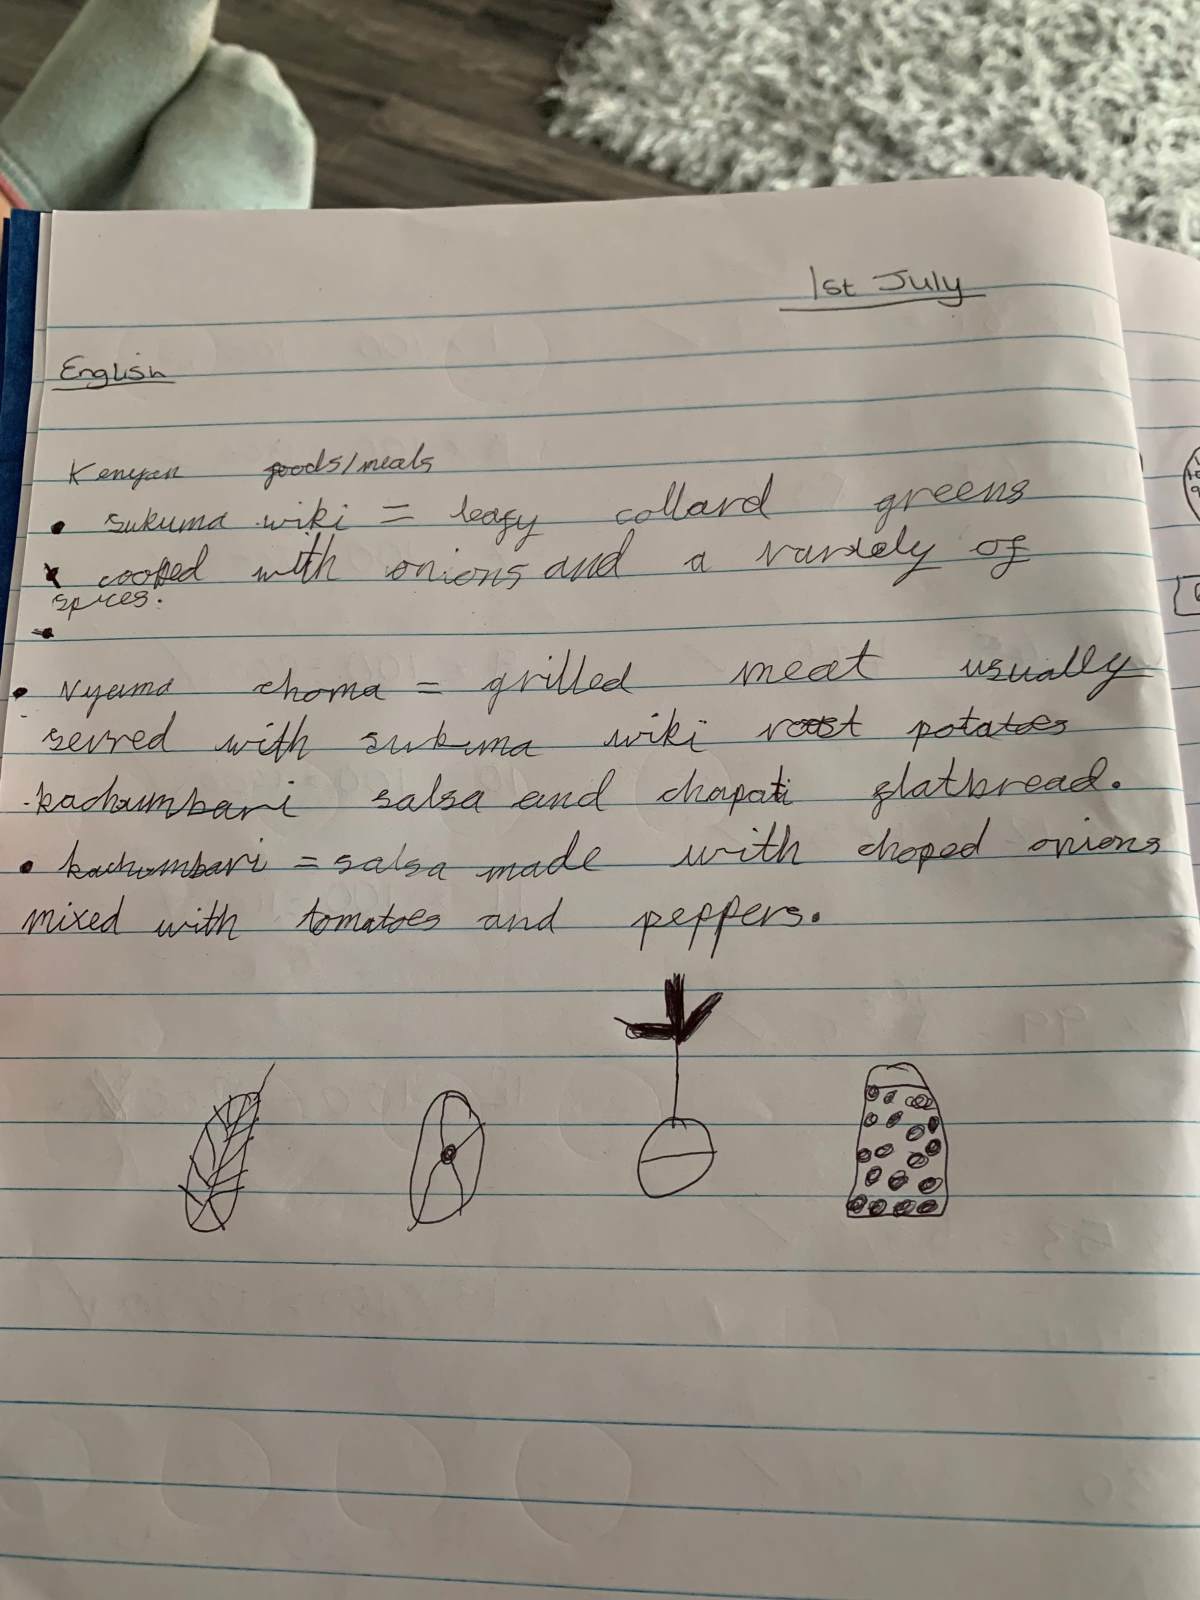 1st July
English
Kenyan foods/meals
• sukuma wiki = leafy collard greens
cooked with onions and a variety of
spices.
• Nyama choma = grilled meat usually
served with sukuma wiki roast potatoes
kachumbari salsa and chapati flatbread.
• kachumbari = salsa made with choped onions
mixed with tomatoes and peppers.